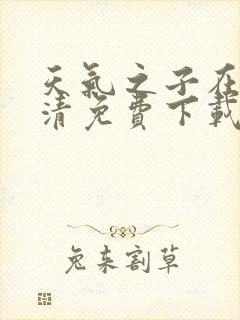 天氣之子在
清免費下載
兔来割草